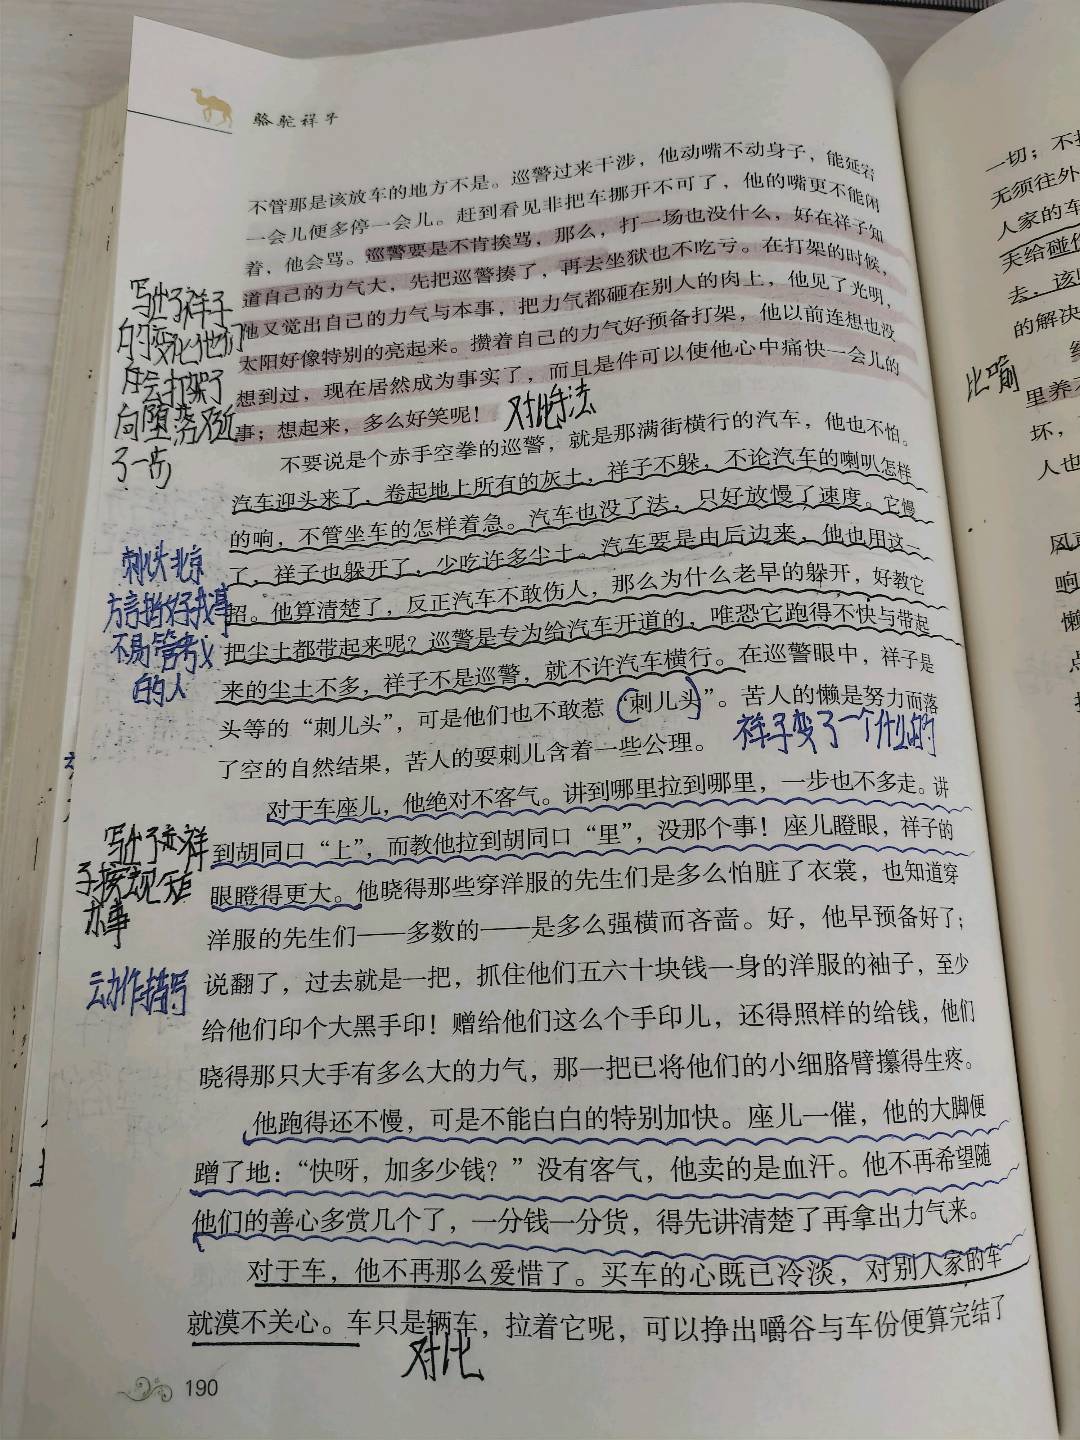 骆驼祥子
不管那是该放车的地方不是。巡警过来干涉，他动嘴不动身子，能延宕
一会儿便多停一会儿。赶到看见非把车挪开不可了，他的嘴更不能闲
着，他会骂。巡警要是不肯挨骂，那么，打一场也没什么，好在祥子知
道自己的力气大，先把巡警揍了，再去坐狱也不吃亏。在打架的时候，
他又觉出自己的力气与本事，把力气都砸在别人的肉上，他见了光明，
太阳好像特别的亮起来。攒着自己的力气好预备打架，他以前连想也没
想到过，现在居然成为事实了，而且是件可以使他心中痛快一会儿的
事；想起来，多么好笑呢！
对比手法
写出了祥子
的变化他们
会打架了
向堕落又近
了一步
不要说是个赤手空拳的巡警，就是那满街横行的汽车，他也不怕。
汽车迎头来了，卷起地上所有的灰土，祥子不躲，不论汽车的喇叭怎样
的响，不管坐车的怎样着急。汽车也没了法，只好放慢了速度。它慢
了，祥子也躲开了，少吃许多尘土。汽车要是由后边来，他也用这一
招。他算清楚了，反正汽车不敢伤人，那么为什么老早的躲开，好教它
把尘土都带起来呢？巡警是专为给汽车开道的，唯恐它跑得不快与带起
来的尘土不多，祥子不是巡警，就不许汽车横行。在巡警眼中，祥子是
头等的“刺儿头”，可是他们也不敢惹“刺儿头”。苦人的懒是努力而落
了空的自然结果，苦人的耍刺儿含着一些公理。
祥子变了一个什么的
刺头北京
方言指好找事
不易管教
的人
对于车座儿，他绝对不客气。讲到哪里拉到哪里，一步也不多走。讲
到胡同口“上”，而教他拉到胡同口“里”，没那个事！座儿瞪眼，祥子的
眼瞪得更大。他晓得那些穿洋服的先生们是多么怕脏了衣裳，也知道穿
洋服的先生们——多数的——是多么强横而吝啬。好，他早预备好了；
说翻了，过去就是一把，抓住他们五六十块钱一身的洋服的袖子，至少
给他们印个大黑手印！赠给他们这么个手印儿，还得照样的给钱，他们
晓得那只大手有多么大的力气，那一把已将他们的小细胳臂攥得生疼。
写出了
办事
动作描写
他跑得还不慢，可是不能白白的特别加快。座儿一催，他的大脚便
蹭了地：“快呀，加多少钱？”没有客气，他卖的是血汗。他不再希望随
他们的善心多赏几个了，一分钱一分货，得先讲清楚了再拿出力气来。
对于车，他不再那么爱惜了。买车的心既已冷淡，对别人家的车
就漠不关心。车只是辆车，拉着它呢，可以挣出嚼谷与车份便算完结了
对比
190
一切；不
无须往外
人家的车
天给碰
去，该
的解决
比喻
里养
坏，
人也
响
懒
点